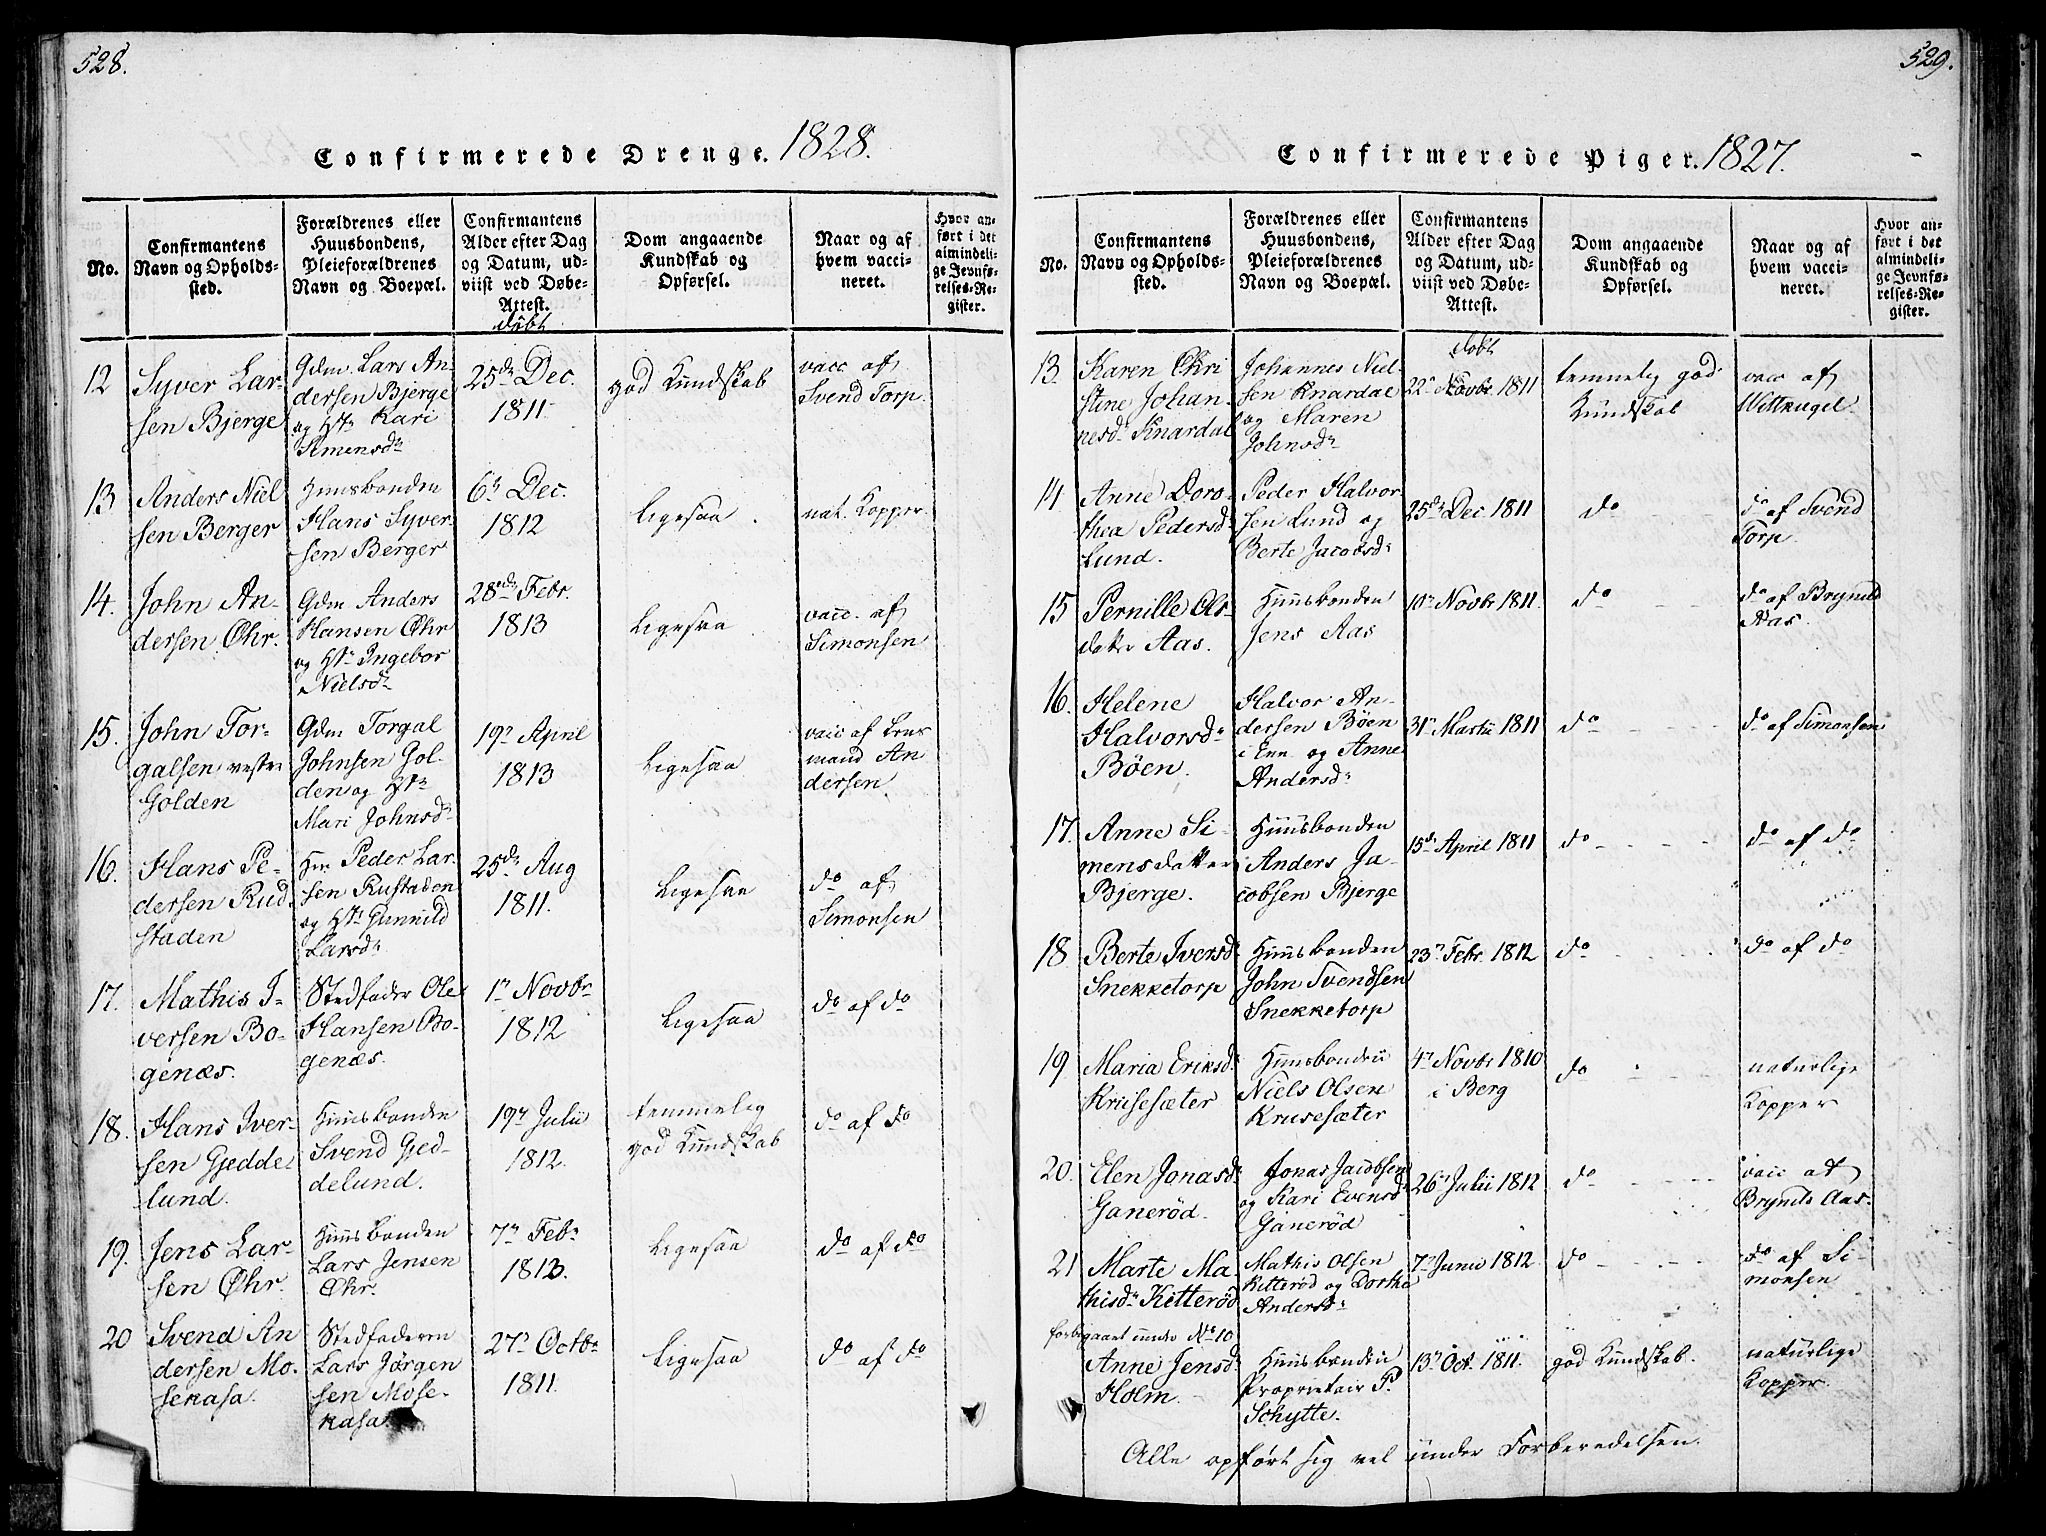 528.
Confirmerede Drenge. 1828.
No.
Confirmantens
Navn og Opholds-
sted.
Forældrenes eller
Huusbondens,
Pleieforældrenes
Navn og Boepæl.
Confirmantens
Alder efter Dag
og Datum, ud-
viist ved Døbe-
Attest.
døbt
Dom angaaende
Kundskab og
Opførsel.
Naar og af
hvem vacci-
neret.
Hvor an-
ført i det
almindeli-
ge Jevnfø-
relses-Re-
gister.
12
Syver Lar-
sen Bjerge
Gdm. Lars An-
dersen Bjerge
og H Kari
Simensd
25d Dec.
1811
god Kundskab
vacc af
Svend Torp.
13
Anders Niel
sen Berger
Huusbonden
Hans Syver-
sen Berger
6 Dec.
1812
Ligesaa
nat. Kopper.
14.
John An-
dersen Øhr.
Gdm Anders
Hansen Øhr
og H Ingebor
Nielsd
28 Febr.
1813
Ligesaa
vacc. af
Simonsen
15.
John Tor-
galsen vestre
Golden
Gdm Torgal
Johnsen Gol-
den og H
Mari Johnsd
19 April
1813
Ligesaa
vacc af Lens
mand An
dersen.
16.
Hans Pe-
dersen Rud-
staden
Hm Peder Lar-
sen Rustaden
og H Gunnild
Larsd
25d Aug
1811.
Ligesaa
do af
Simonsen
17.
Mathis I-
versen Bo-
genæs.
Stedfader Ole
Hansen Bo-
genæs.
1 Novbr
1812
Ligesaa
do af do
18.
Hans Iver-
sen Gjedde-
lund.
Huusbonden
Svend Gjed-
delund.
19 Julii
1812.
temmelig
god Kundskab
do af do
19.
Jens Lar-
sen Øhr.
Huusbonden
Lars Jensen
Øhr.
7 Febr
1813.
Ligesaa
do af do
20
Svend An
dersen Mo-
sekasa.
Stedfaderen
Lars Jørgen
sen Mose-
kasa
27 Octbr
1811.
Ligesaa
do af do
529.
Confirmerede Piger. 1827.
No.
Confirmantens
Navn og Opholds-
sted.
Forældrenes eller
Huusbondens,
Pleieforældrenes
Navn og Boepæl.
Confirmantens
Alder efter Dag
og Datum, ud-
viist ved Døbe-
Attest.
døbt
Dom angaaende
Kundskab og
Opførsel.
Naar og af
hvem vacci-
neret.
Hvor an-
ført i det
almindeli-
ge Jevnfø-
relses-Re-
gister.
13.
Karen Chri
stine Johan-
nesd Knardal
Johannes Niel-
sen Knardal
og Maren
Johnsd
22 Novbr 1811
temmelig god
Kundskab
vacc af
Wittkugel.
14
Anne Doro-
thea Pedersd
Lund.
Peder Halvor
sen Lund og
Berte Jacobsd
25d Dec. 1811
do
do af Svend
Torp.
15
Pernille Ols-
datter Aas.
Huusbonden
Jens Aas
10 Novbr 1811.
do
do af Brynild
Aas.
16.
Helene
Halvorsd
Bøen.
Halvor An-
dersen Bøen
i Enn og Anne
Andersd
31 Martii 1811
do
do af Simonsen
17.
Anne Si-
mensdatter
Bjerge.
Huusbonden
Anders Ja-
cobsen Bjerge
15d April 1811
do
do af do
18
Berte Iversd
Snekketorp
Huusbonden
John Svendsen
Snekketorp
23 Febr. 1812
do
do af do
19
Maria Eriksd
Krusesæter
Huusbonden
Niels Olsen
Krusesæter
4 Novbr 1810
i Berg
do
naturlige
Kopper
20.
Elen Jonasd
Ganerød.
Jonas Jacobsen
og Kari Evensd
Ganerød
26 Julii 1812
do
vacc af
Brynils Aas.
21
Marte Ma-
thisd Kitterød
Mathis Olsen
Kitterød og Dorthe
Andersd
7 Junii 1812.
do
do af Si-
monsen
forbigaaet under No 10
Anne Jensd
Holm
Huusbonden
Proprietair P.
Schytte.
13 Oct. 1811.
god Kundskab.
naturlige
Kopper.
Alle opført sig vel under Forberedelsen.